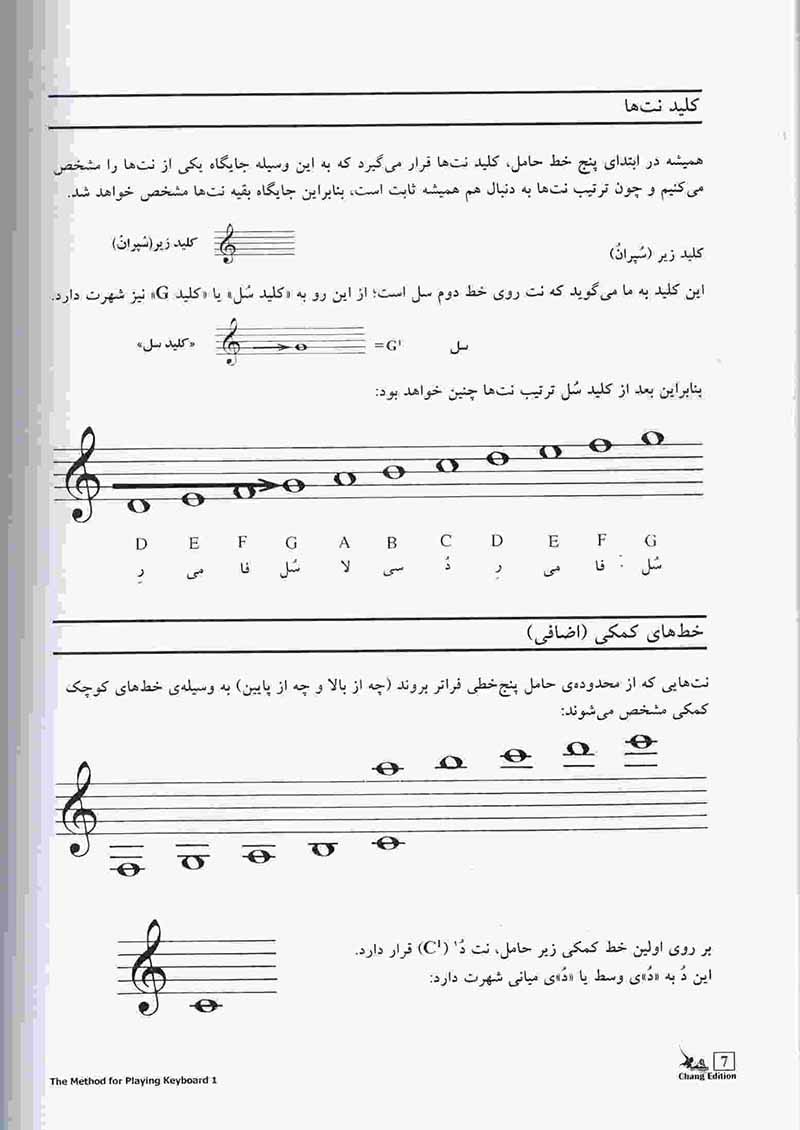 کلید نت‌ها
همیشه در ابتدای پنج خط حامل، کلید نت‌ها قرار می‌گیرد که به این وسیله جایگاه یکی از نت‌ها را مشخص
می‌کنیم و چون ترتیب نت‌ها به دنبال هم همیشه ثابت است، بنابراین جایگاه بقیه نت‌ها مشخص خواهد شد.
کلید زیر (سُپرانُ)
کلید زیر(سُپرانُ)
این کلید به ما می‌گوید که نت روی خط دوم سل است؛ از این رو به «کلید سُل» یا «کلید G» نیز شهرت دارد.
سل =G¹ «کلید سل»
بنابراین بعد از کلید سُل ترتیب نت‌ها چنین خواهد بود:
D E F G A B C D E F G
رِ می فا سُل لا سی دُ رِ می فا سُل
خط‌های کمکی (اضافی)
نت‌هایی که از محدوده‌ی حامل پنج‌خطی فراتر بروند (چه از بالا و چه از پایین) به وسیله‌ی خط‌های کوچک
کمکی مشخص می‌شوند:
بر روی اولین خط کمکی زیر حامل، نت دُ¹ (C¹) قرار دارد.
این دُ به «دُ»ی وسط یا «دُ»ی میانی شهرت دارد:
7
Chang Edition
The Method for Playing Keyboard 1